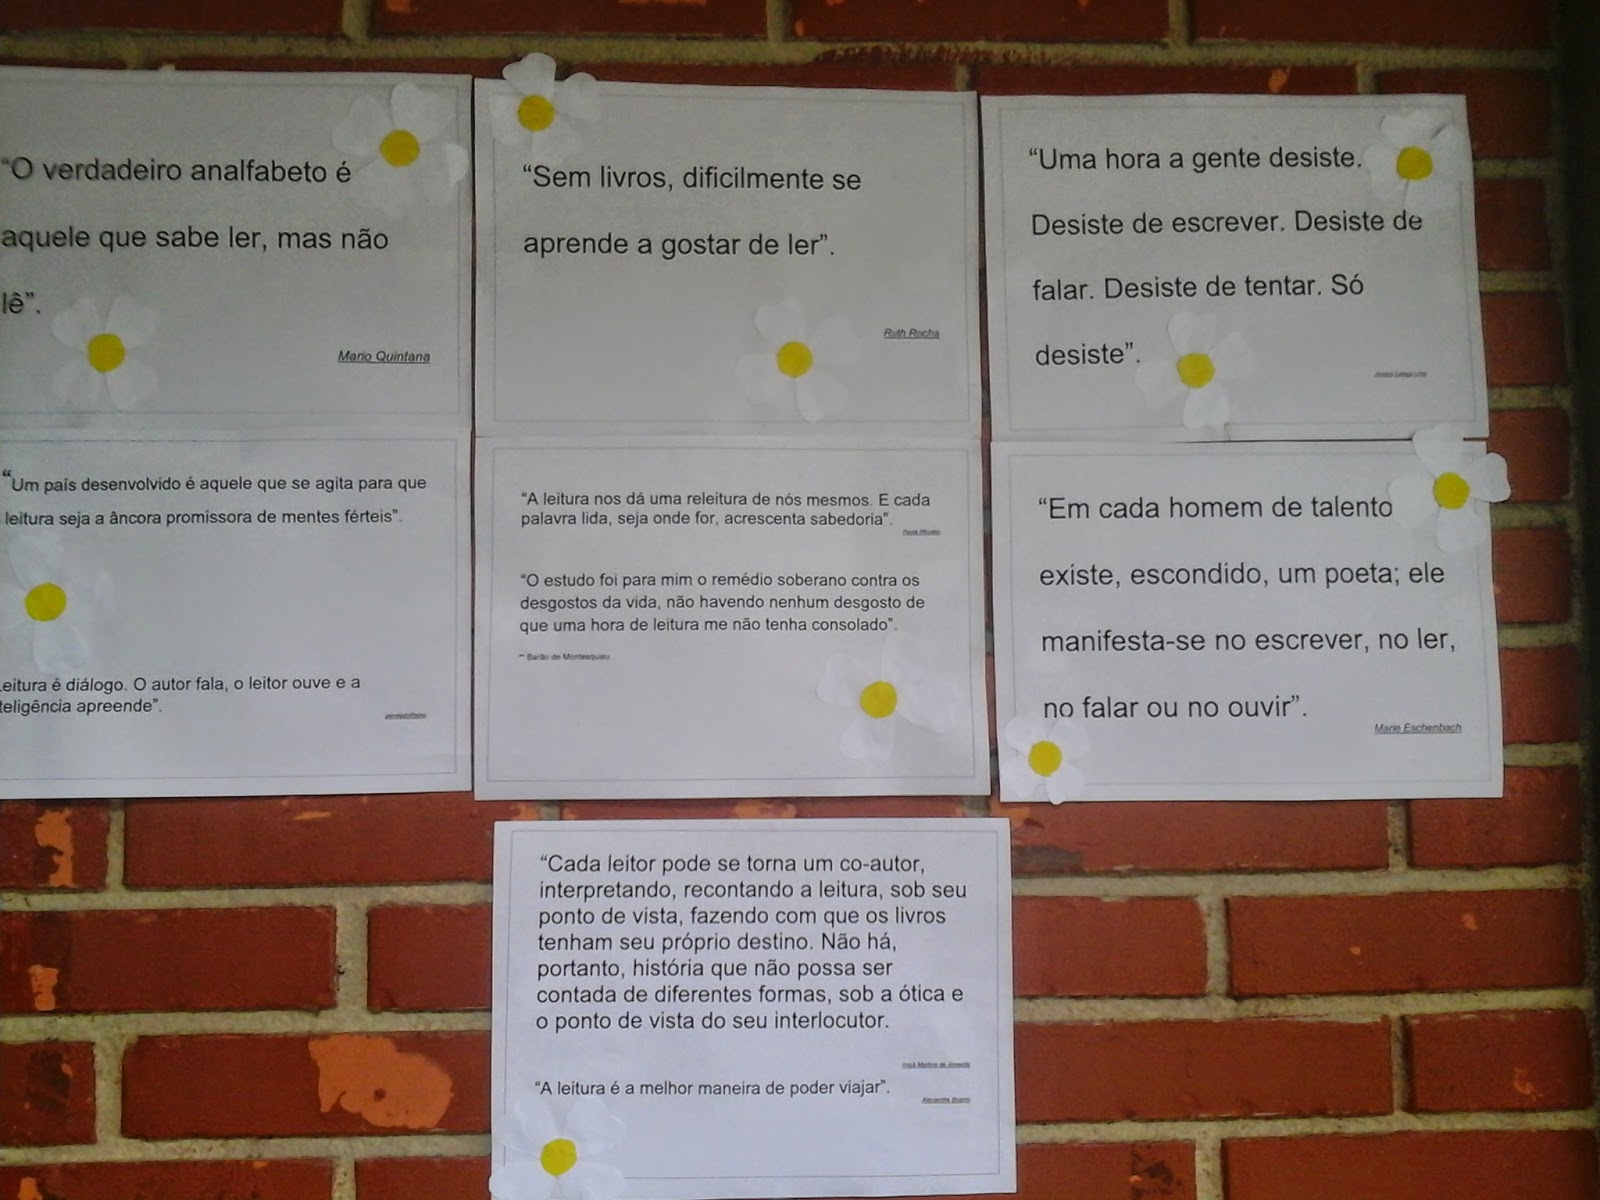 “O verdadeiro analfabeto é
aquele que sabe ler, mas não
lê”.
Mario Quintana
“Sem livros, dificilmente se
aprende a gostar de ler”.
Ruth Rocha
“Uma hora a gente desiste.
Desiste de escrever. Desiste de
falar. Desiste de tentar. Só
desiste”.
“Um país desenvolvido é aquele que se agita para que
leitura seja a âncora promissora de mentes férteis”.
eitura é diálogo. O autor fala, o leitor ouve e a
teligência apreende”.
“A leitura nos dá uma releitura de nós mesmos. E cada
palavra lida, seja onde for, acrescenta sabedoria”.
“O estudo foi para mim o remédio soberano contra os
desgostos da vida, não havendo nenhum desgosto de
que uma hora de leitura me não tenha consolado”.
– Barão de Montesquieu
“Em cada homem de talento
existe, escondido, um poeta; ele
manifesta-se no escrever, no ler,
no falar ou no ouvir”.
Marie Eschenbach
“Cada leitor pode se torna um co-autor,
interpretando, recontando a leitura, sob seu
ponto de vista, fazendo com que os livros
tenham seu próprio destino. Não há,
portanto, história que não possa ser
contada de diferentes formas, sob a ótica e
o ponto de vista do seu interlocutor.
Martins de Almeida
“A leitura é a melhor maneira de poder viajar”.
Alexandre Bueno